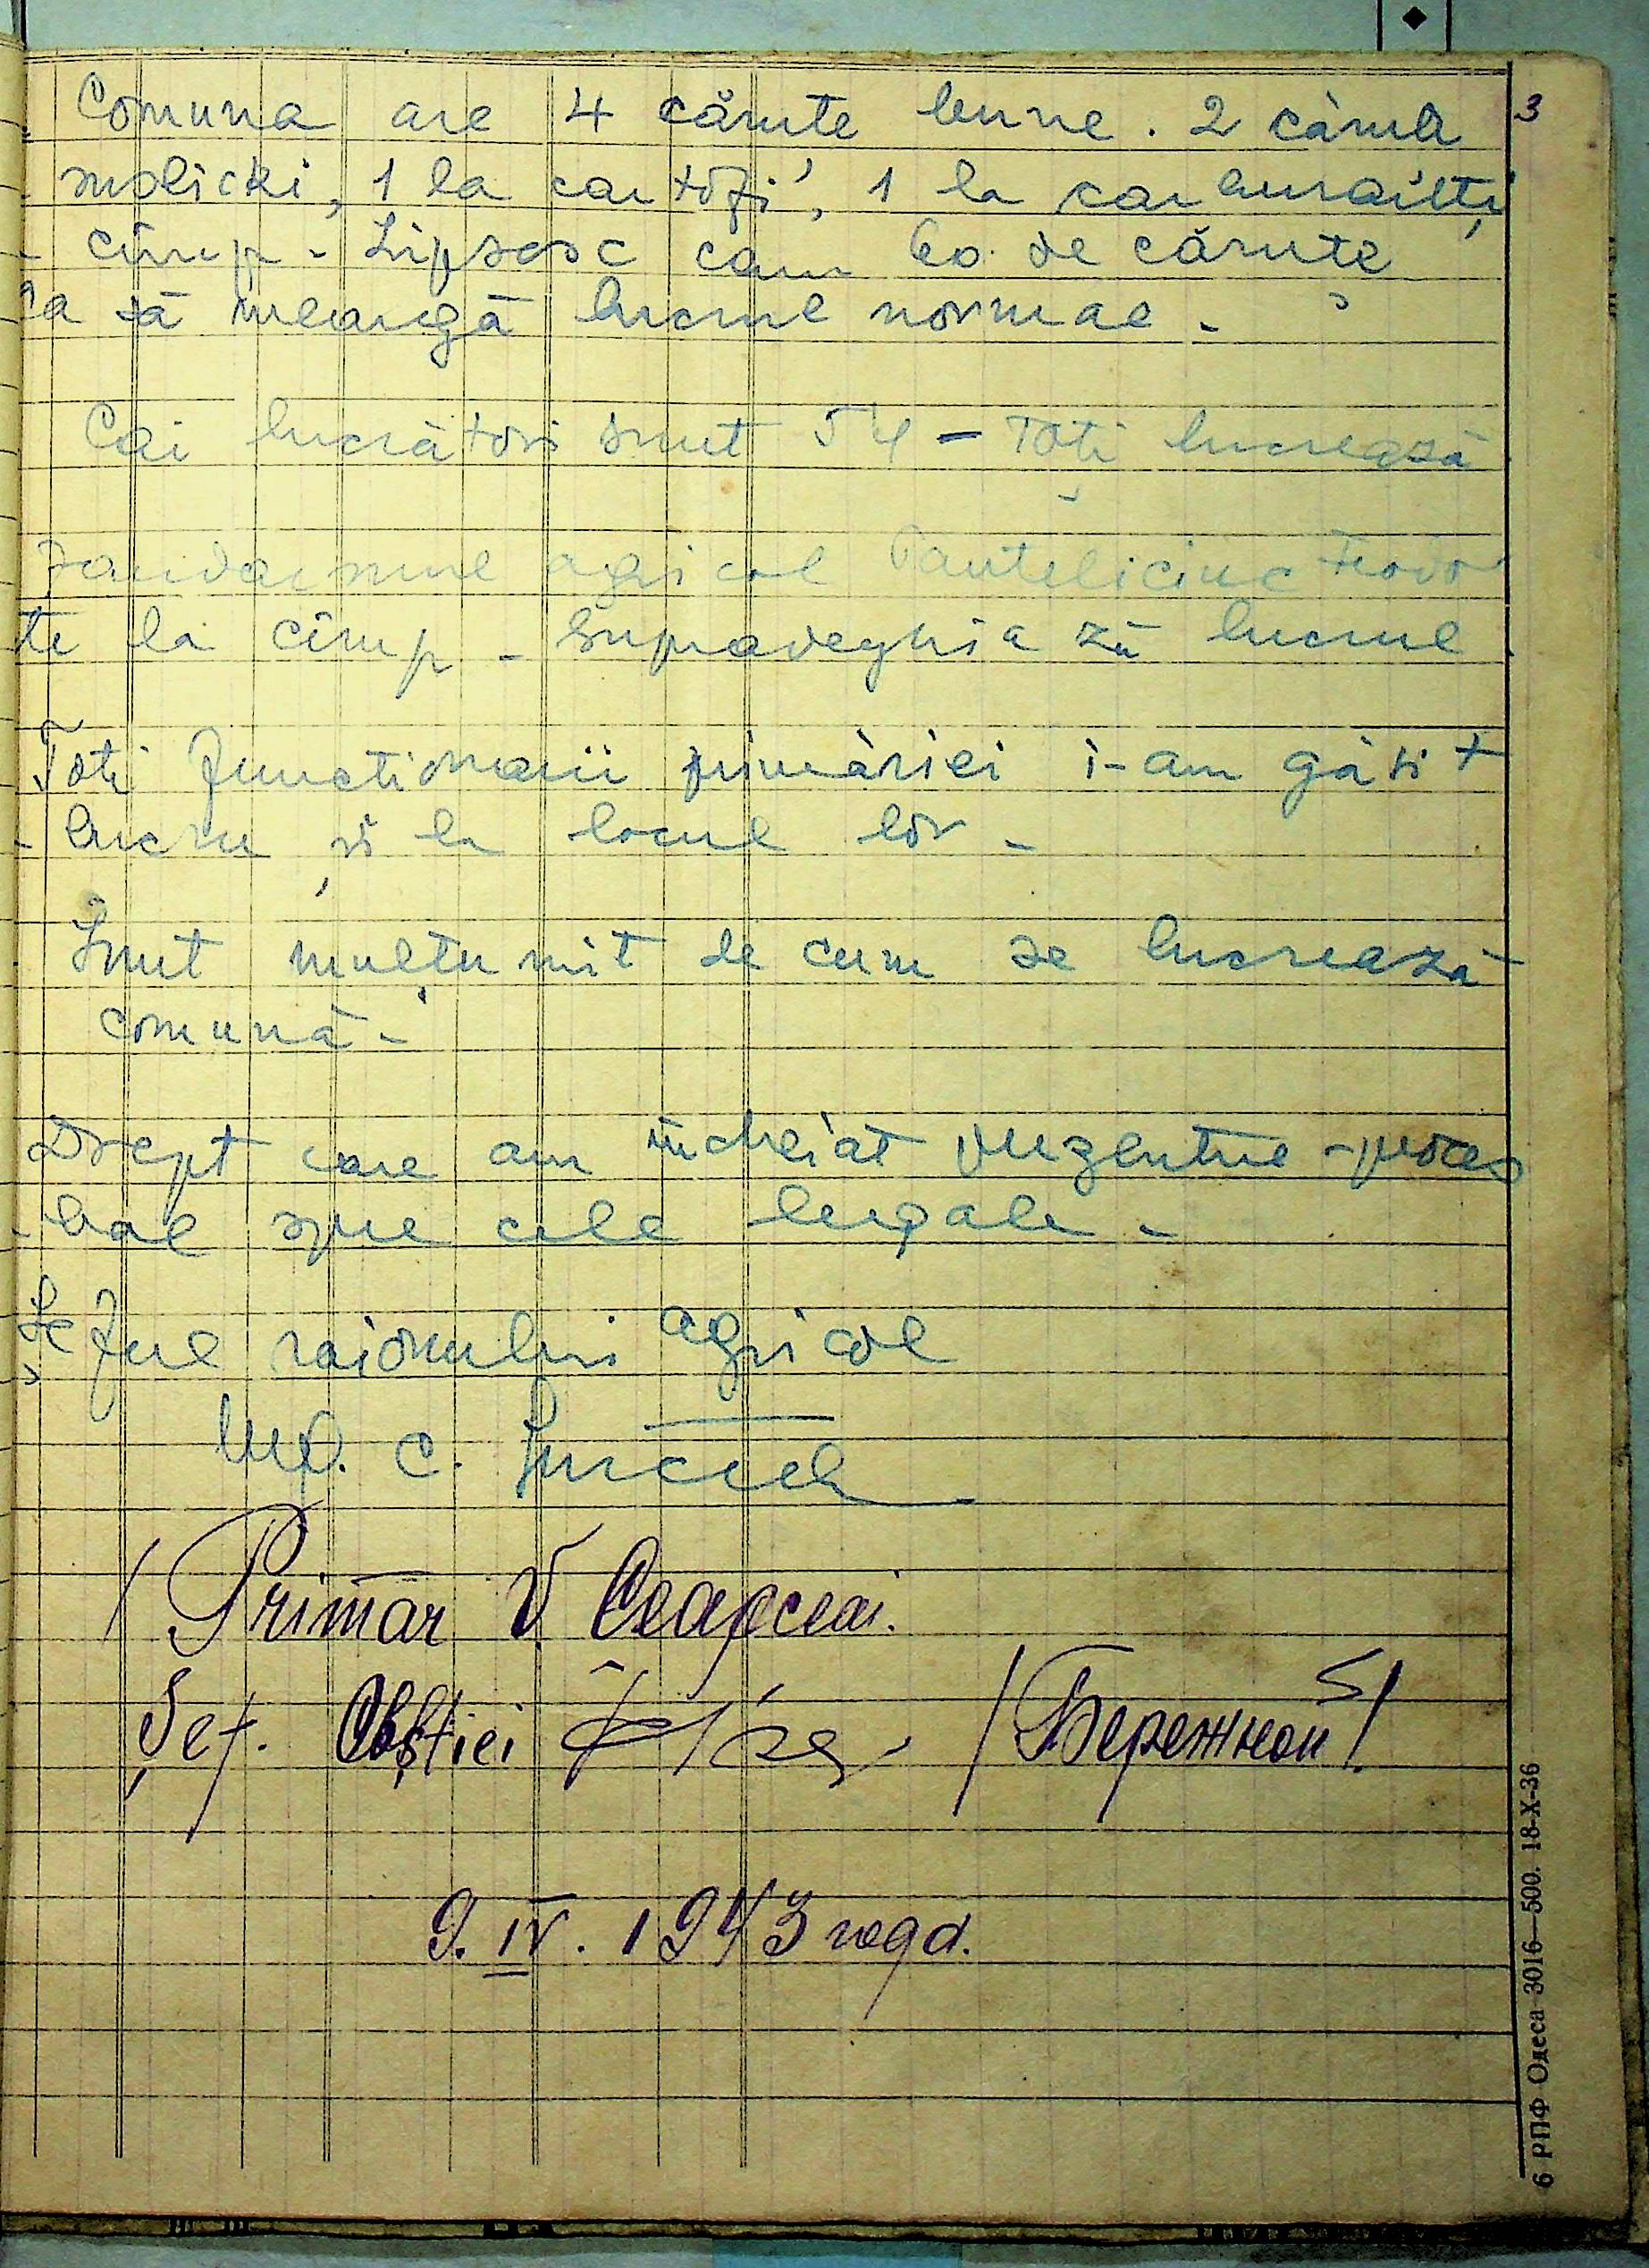 3
Comuna are 4 căruțe bune. 2 căruțe
molicki, 1 la cartofi, 1 la car
cîmp - Lipsesc cam 60 de căruțe
ca să meargă lucrul normal -
Cai lucrători sunt 54 - Toți lucrează
Jandarmul agricol Panteliciuc Feodor
te la cîmp - supraveghiază lucrul
Toți funcționarii primăriei i-am găsit
- lucru și la locul lor -
Sunt mulțumit de cum se lucrează
comună -
Drept care am încheiat prezentul - proces
- bal spre cele legale -
Șeful raionului agricol
C.
/ Primar V. Ceapceai.
Șef. Obștiei /Бережной/
9. IV. 1943 года.
6 РПФ Одеса 3016—500. 18-X-36